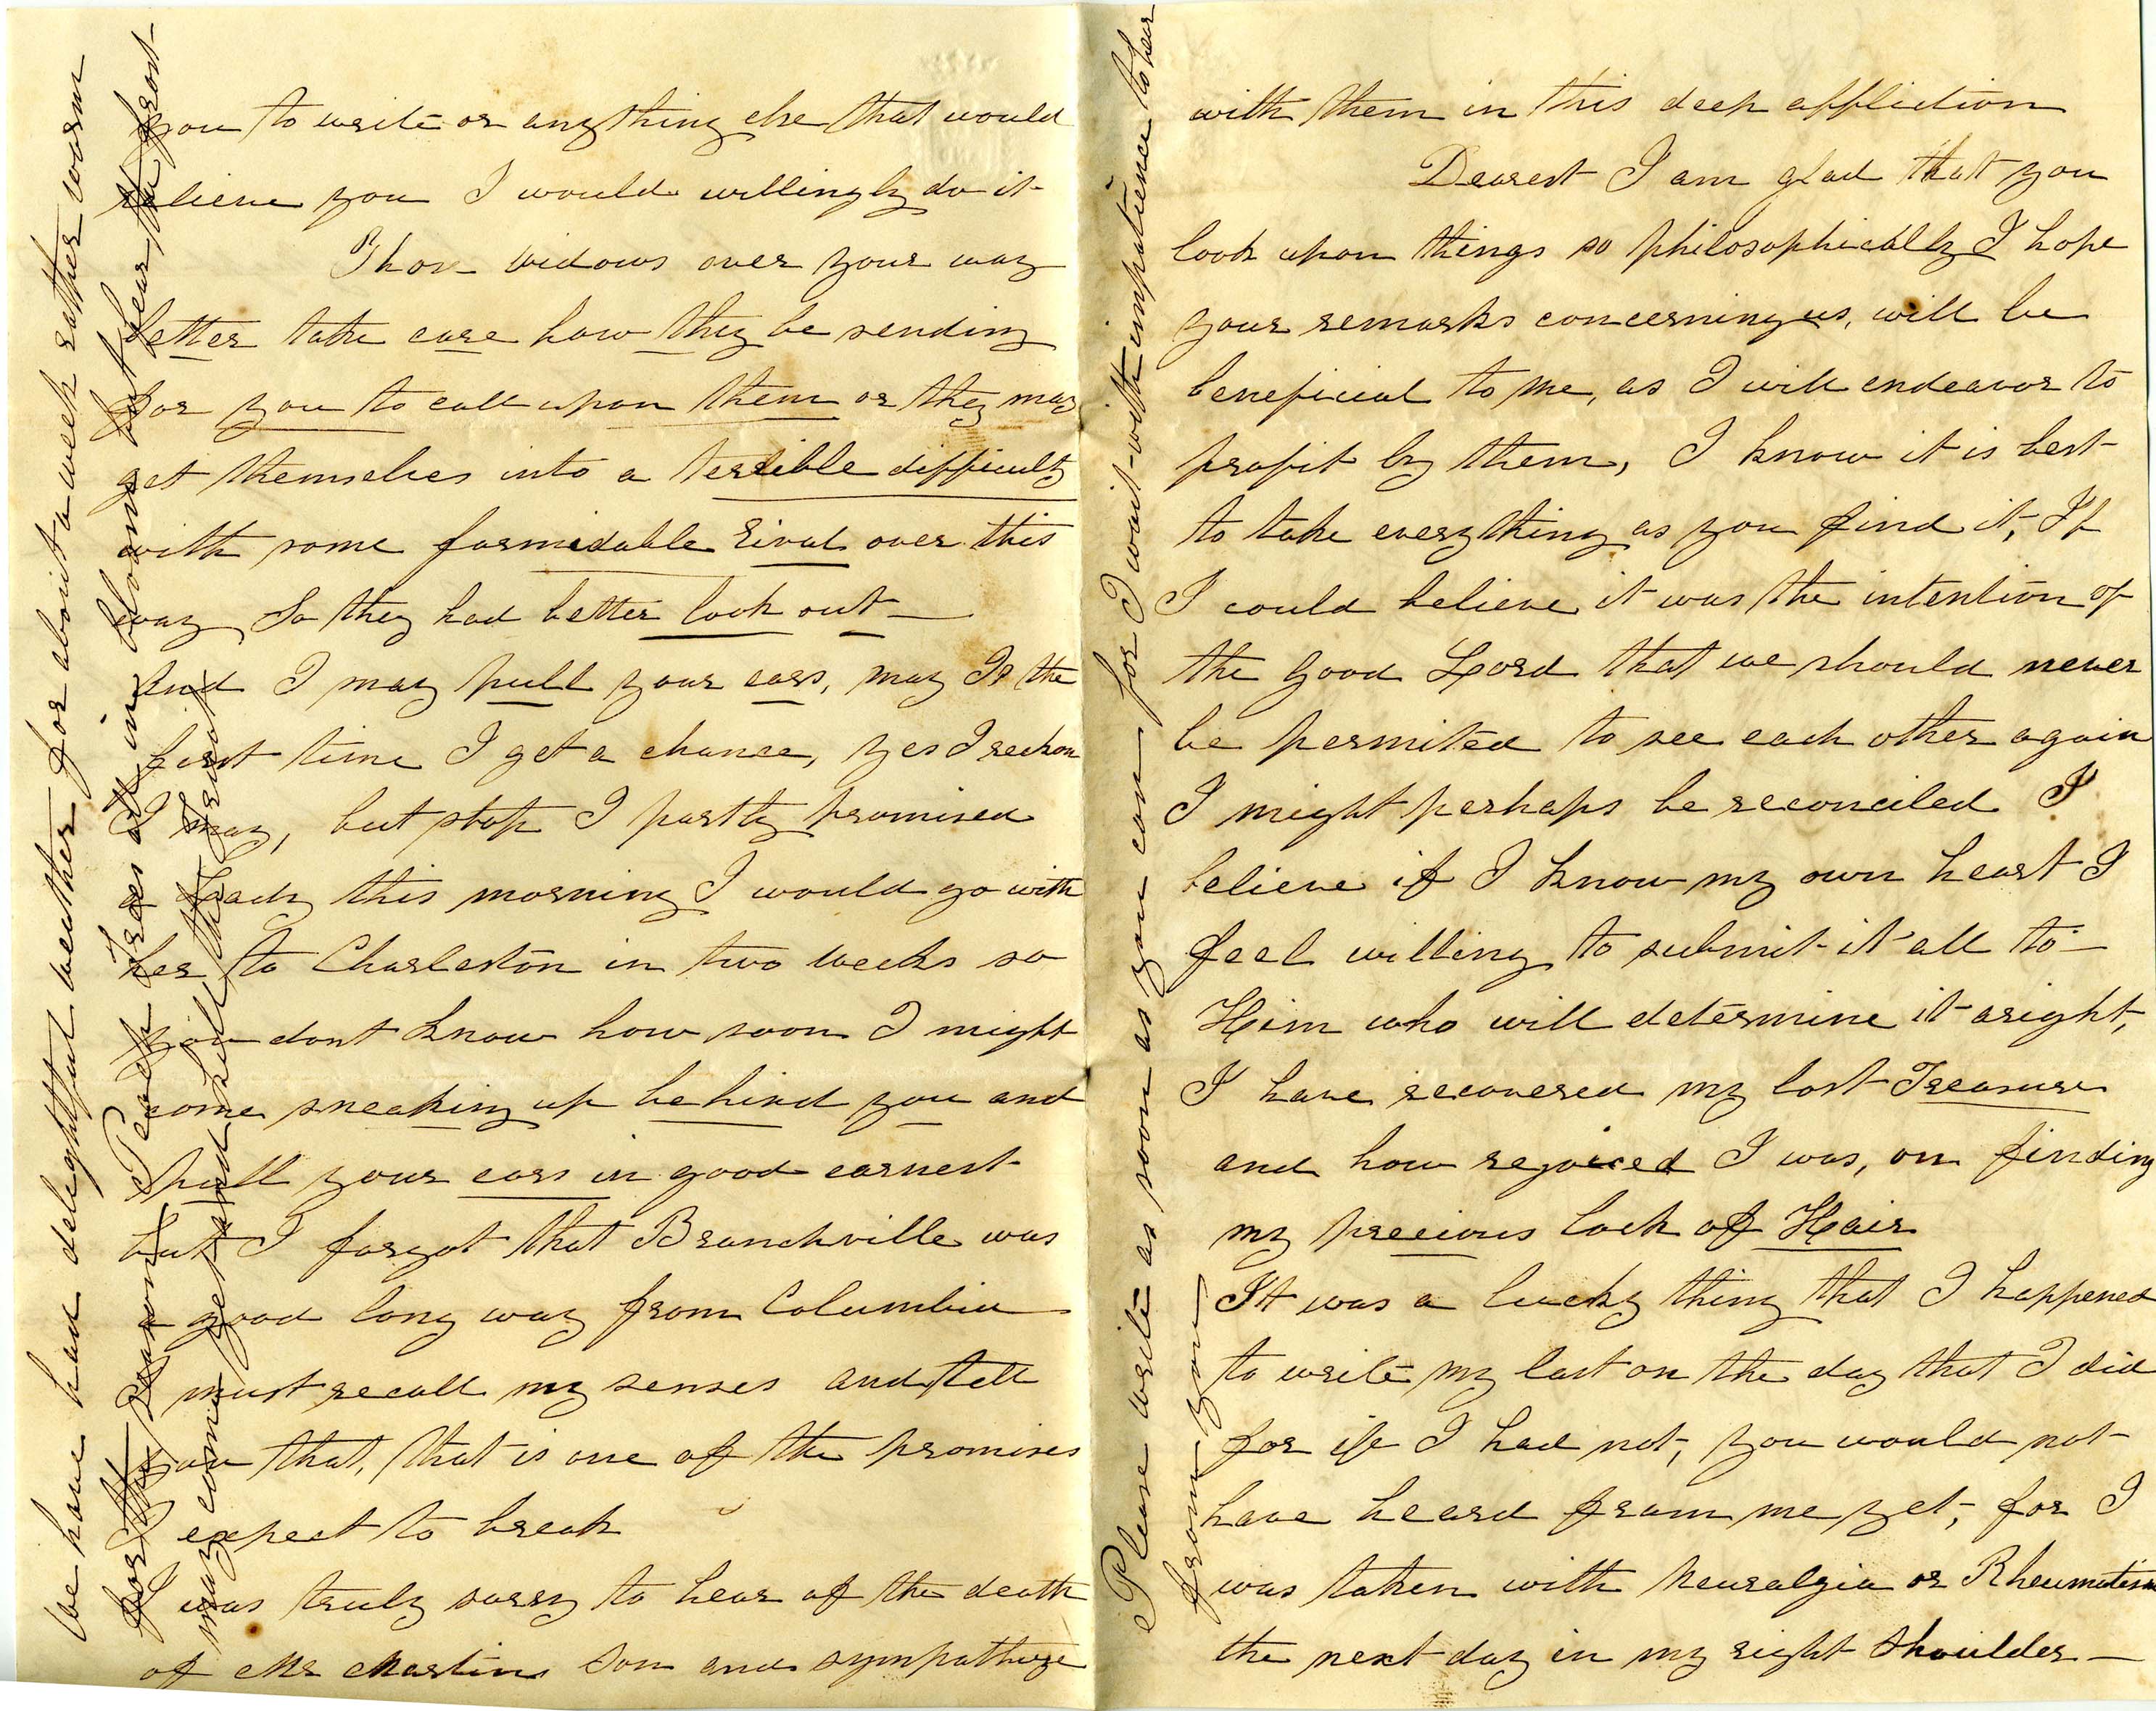 you to write or anything else that would
relieve you I would willingly do it
Thos widows over your way
better take care how they be sending
for you to call upon them or they may
get themselves into a terrible difficulty
with some formidable rival over this
way, So they had better look out—
And I may pull your ears, may I? the
first time I get a chance, yes I reckon
I may, but stop I partly promised
a Lady this morning I would go with
her to Charleston in two weeks so
you dont know how soon I might
come sneaking up behind you and
pull your ears in good earnest
but I forgot that Branchville was
a good long way from Columbia
I must recall my senses and tell
you that, that is one of the promises
I expect to break
I was truly sorry to hear of the death
of Mr Martins Son and sympathize
We have had delightful weather for about a week rather warm
for the season, Peach Trees all in bloom but fear the frost
may come yet and kill the fruit
with them in this deep affliction
Dearest I am glad that you
look upon things so philosophically I hope
your remarks concerning us, will be
beneficial to me, as I will endeavor to
profit by them, I know it is best
to take everything as you find it, If
I could believe it was the intention of
the good Lord that we should never
be permited to see each other again
I might perhaps be reconciled I
believe if I know my own heart I
feel willing to submit it all to—
Him who will determine it aright,
I have recovered my lost Treasure
and how rejoiced I was, on finding
my precious lock of Hair
It was a lucky thing that I happened
to write my last on the day that I did
for if I had not, you would not
have heard from me yet, for I
was taken with neuralgia or Rheumatism
the next day in my right shoulder—
Please write as soon as you can for I wait with impatience to hear
from you—